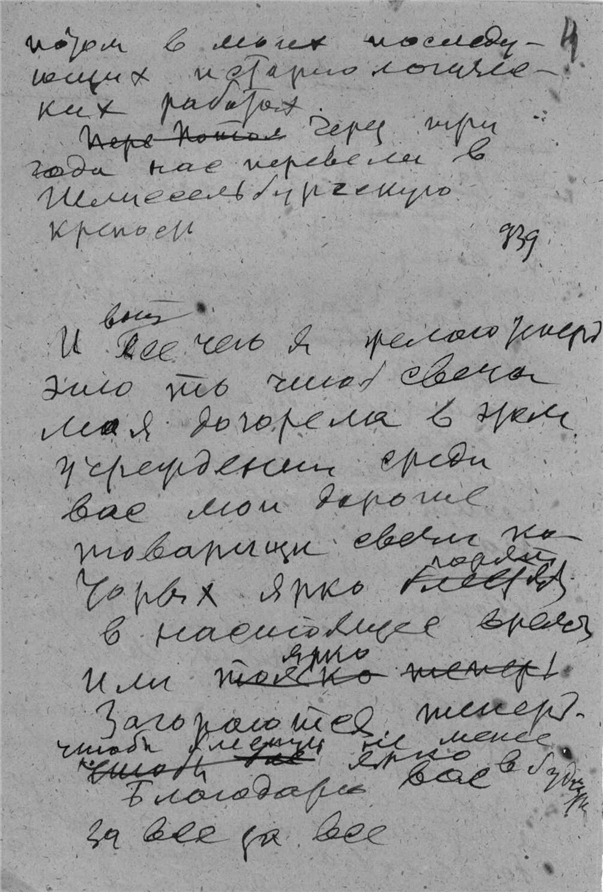 4
потом в моих последу-
ющих историологичес-
ких работах.
Через три
года нас перевели в
Шлиссельбургскую
крепость
939
И всё чего я желаю теперь
это то чтоб свеча
моя догорела в этом
учреждении среди
вас мои дорогие
товарищи свечи ко-
торых ярко горят
в настоящее время
или ярко
Загораются теперь
чтобы не менее
ярко в будущ
Благодарю вас
за все за все